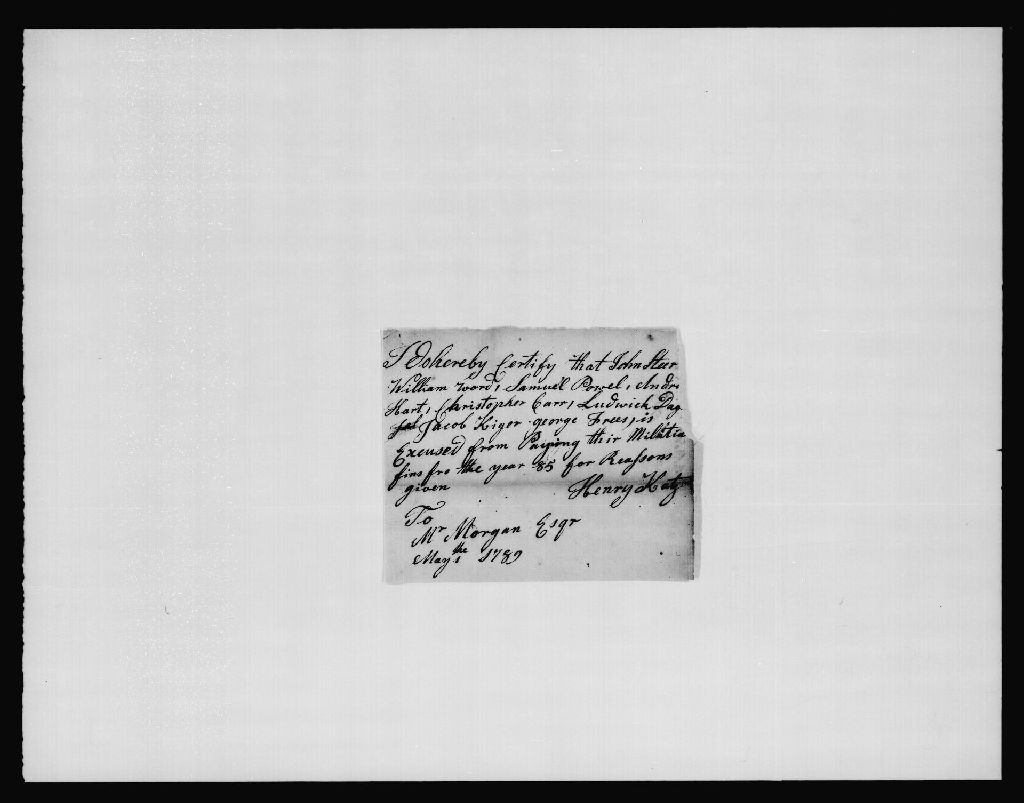 I Do hereby Certify that John Stur
William word, Samuel Powel, Andr
Hart, Christopher Carr, Ludwich Day
Jacob Kiger george Frees, is
Excused from Paying their Militia
fins fro the year 85 for Reasons
given Henry Hatz
To
Mr Morgan Esqr
May the 1 1789